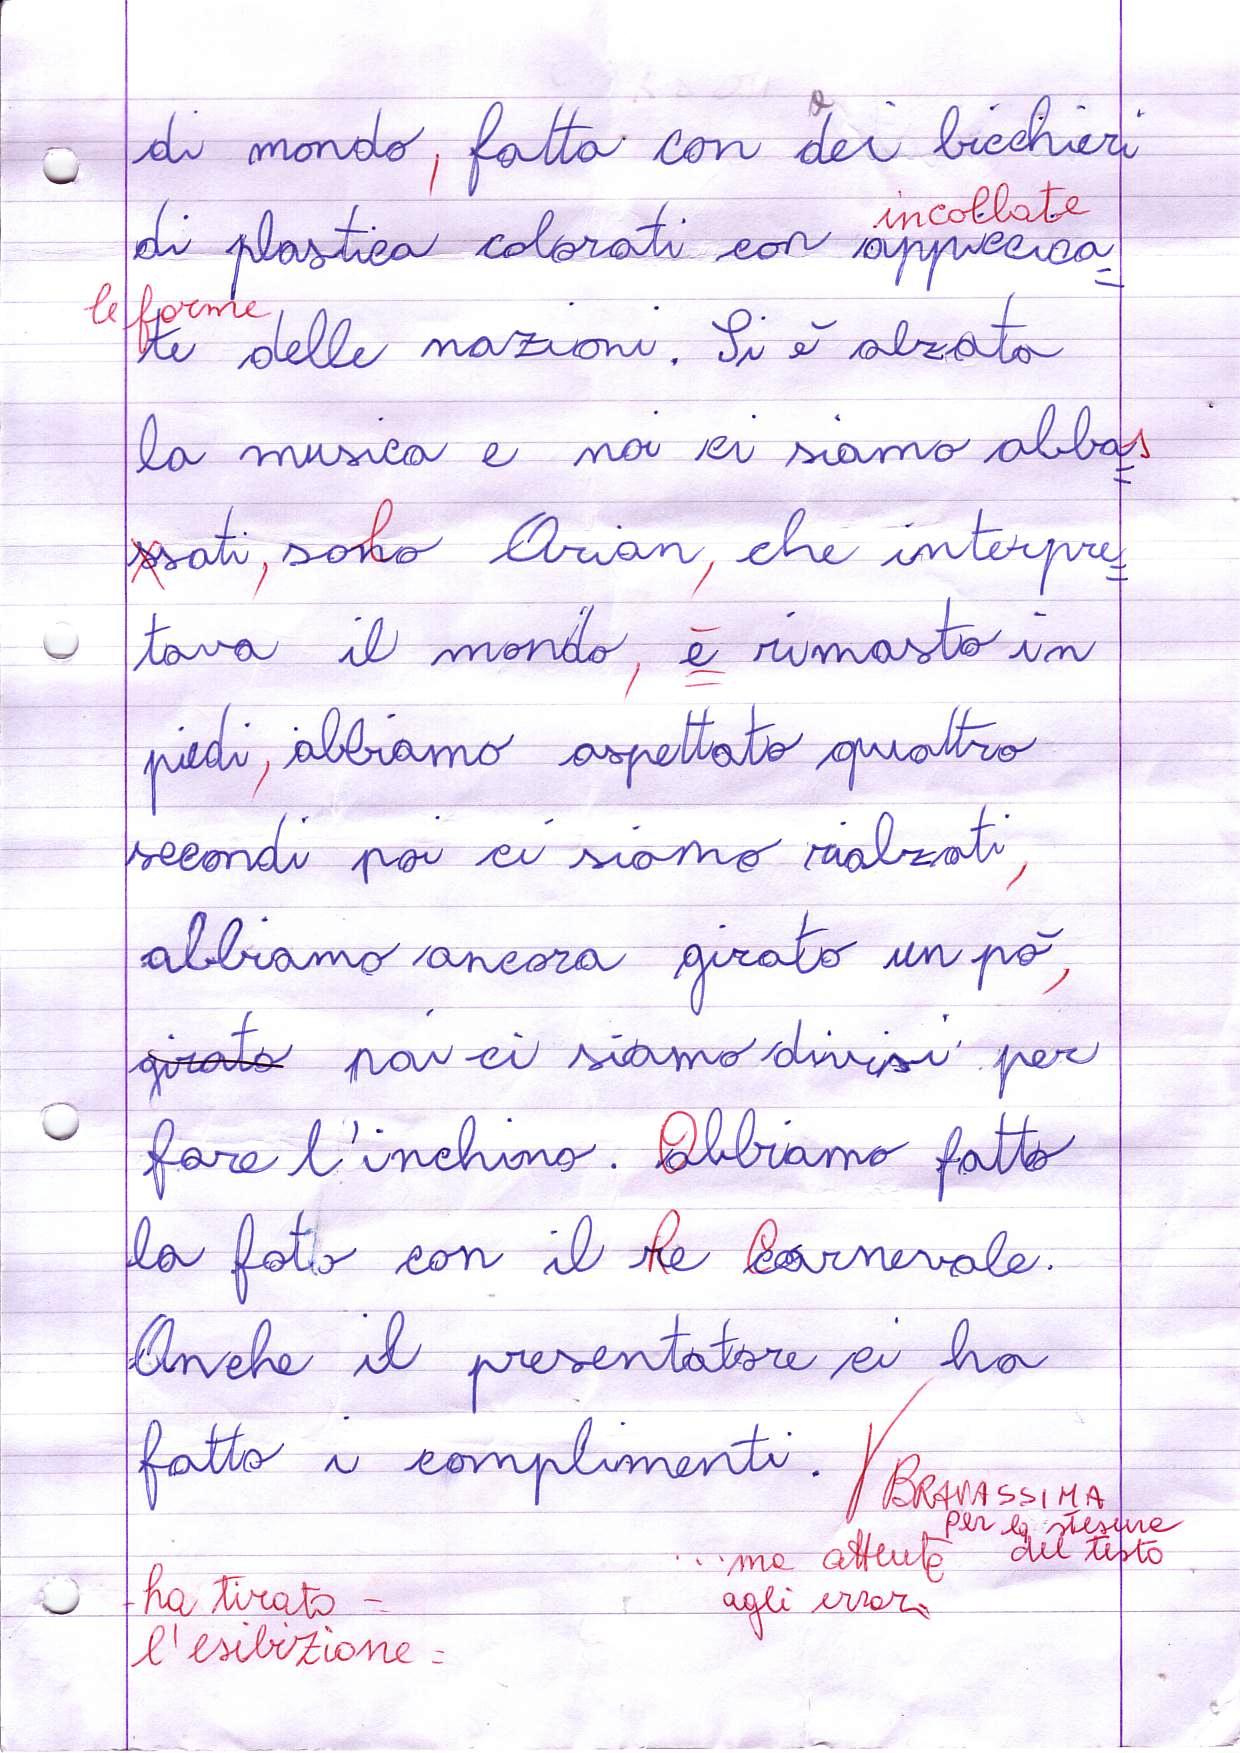 di mondo, fatta con dei bicchieri
incollate
di plastica colorati con appiccica=
le forme
te delle nazioni. Si è alzata
la musica e noi ci siamo abbas=
ssati, solo Arian, che interpre=
tava il mondo, è rimasto in
piedi, abbiamo aspettato quattro
secondi poi ci siamo rialzati,
abbiamo ancora girato un pò,
girato poi ci siamo divisi per
fare l'inchino. Abbiamo fatto
la foto con il Re Carnevale.
Anche il presentatore ci ha
fatto i complimenti.
BRAVASSIMA
per la stesura
del testo
...ma attenta
agli errori
ha tirato =
l'esibizione =